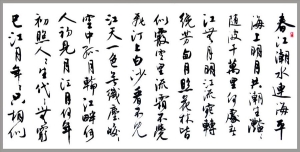 春江潮水連海平
海上明月共潮生灩灩
隨波千萬里何處春
江無月明江流宛轉
繞芳甸月照花林皆
似霰空里流霜不覺
飛汀上白沙看不見
江天一色無纖塵皎皎
空中孤月輪江畔何
人初見月江月何年
初照人人生代代無窮
已江月年年只相似